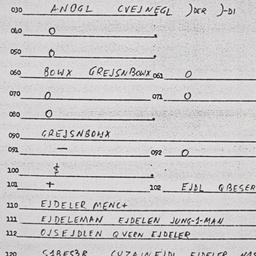 030 ANOGL (VEJNEGL )DER )-DI
040 O
050 O
060 BOWX GREJSNBOWX 061 O
070 O 071 O
080 O
090 GREJSNBOWX
091 — 092 O
100 $
101 + 102 EJDL QBESER
110 EJDELER MENC+
111 EJDELEMAN EJDELEN JUNG-1-MAN
112 OJSEJDLEN QVERN EJDELER
120 EJDELER